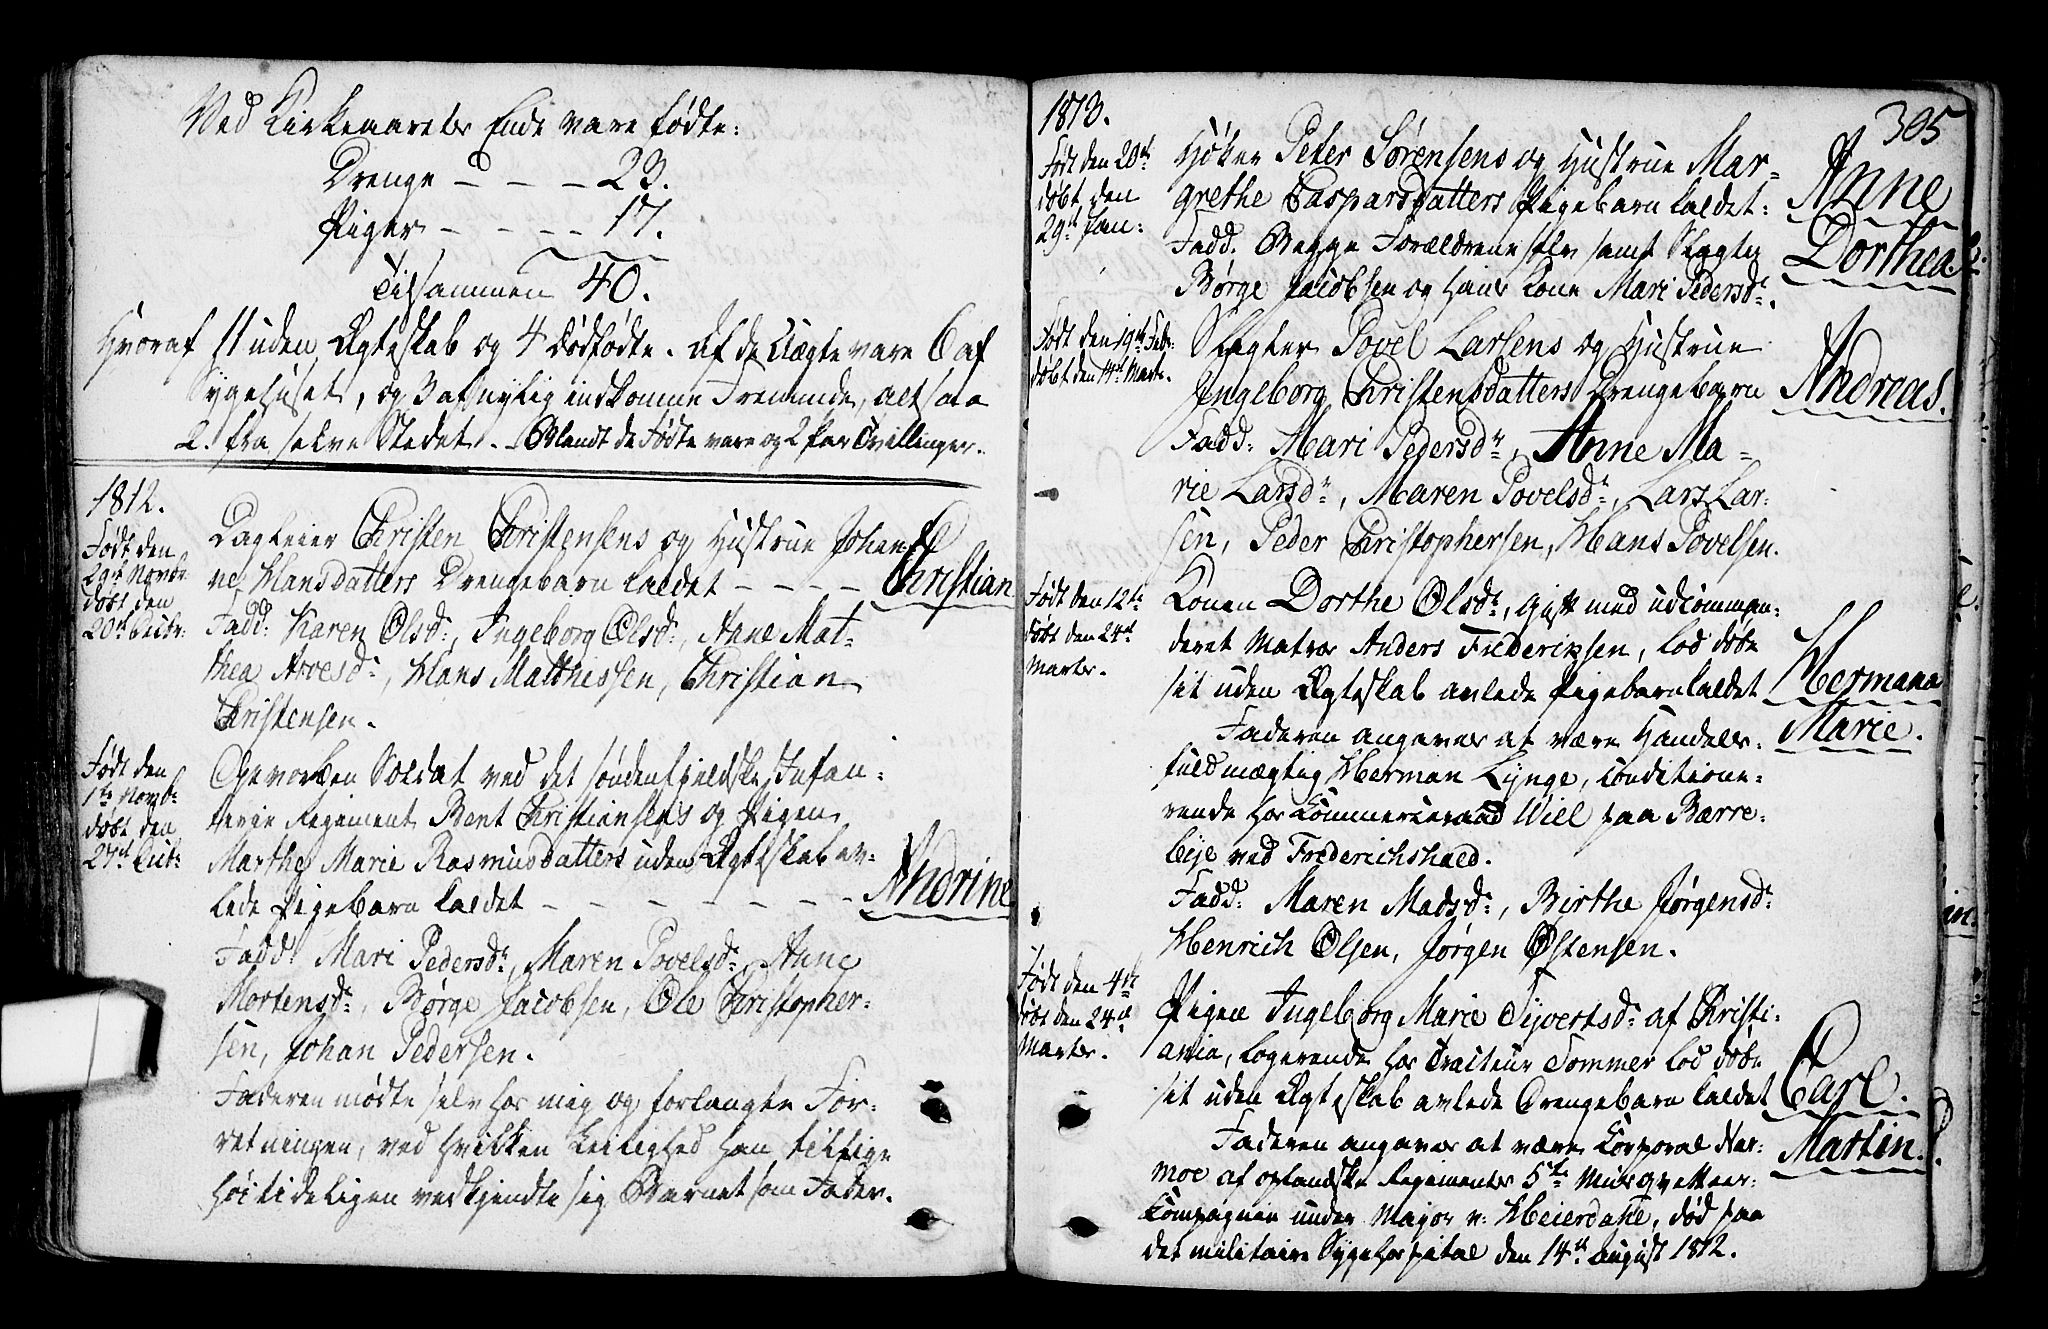 Ved Kirkeaarets Ende vare fødte:
Drenge - - - 23.
Piger - - - - 17.
Tilsammen 40.
Hvoraf 11 uden Ægteskab og 4 dødfødte. Af de Uægte vare 6 af
Sygehuset, og 3 af nylig indkomne Fremmede, altsaa
2. fra selve Stedet. Blandt de Fødte vare og 2 Par Tvillinger.
1812.
Født den
29de Novbr
døbt den
20de Decbr.
Dagleier Christen Christensens og Hustrue Johan-
ne Hansdatters Drengebarn kaldet - - - -
Christian
Fadd: Karen Olsdr, Ingeborg Olsdr, Anne Mat-
thea Arvesdr, Hans Matthissen, Christian
Christensen.
Født den
1te Novbr
døbt den
27de Decbr
Gevorben Soldat ved det søndenfjeldske Infan-
terie Regiment Bent Christiansens og Pigen
Marthe Marie Rasmusdatters uden Ægteskab av-
lede Pigebarn kaldet - - - - - - -
Andrine
Fadd: Mari Pedersdr, Maren Povelsdr, Anne
Mortensdr, Børge Jacobsen, Ole Christopher-
sen, Johan Pedersen.
Faderen mødte selv hos mig og forlangte For-
retningen, ved hvilken Leilighed han tillige
høitideligen vedkjendte sig Barnet som Fader.
305
1813.
Født den 20de
døbt den
29de Jan:
Høker Peter Sørensens og Hustrue Mar-
grethe Caspersdatters Pigebarn kaldet:
Anne
Dorthea.
Fadd: Begge Forældrene selv samt Slagter
Børge Jacobsen og hans Kone Mari Pedersdr.
Født den 19de Febr:
døbt den 14de Marts.
Slagter Povel Larsens og Hustrue
Ingeborg Christensdatters Drengebarn
Andreas.
Fadd: Mari Pedersdr, Anne Ma-
rie Larsdr, Maren Povelsdr, Lars Lar-
sen, Peder Christophersen, Hans Povelsen.
Født den 12te
døbt den 24de
Marts.
Konen Dorthe Olsdr, gift med udcomman-
deret Matros Anders Friderixsen, lod døbe
sit uden Ægteskab avlede Pigebarn kaldet
Hermana
Marie.
Faderen angaves at være Handels-
fuldmægtig Herman Lynge, conditione-
rende hos Commerceraad Wiel paa Bærre-
bye ved Friderichshald.
Fadd: Maren Madsdr, Birthe Jørgensdr
Henrich Olsen, Jørgen Østensen.
Født den 4de
døbt den 24de
Marts.
Pigen Ingeborg Marie Syvertsdr af Christi-
ania, logerende hos Tracteur Sommer lod døbe
sit uden Ægteskab avlede Drengebarn kaldet
Carl
Martin.
Faderen angaves at være Corporal Nar-
moe af oplandske Regiments 5te Musqvetteer-
Compagnie under Major v: Heierdahl, død paa
det militaire Sygehospital den 14de August 1812.